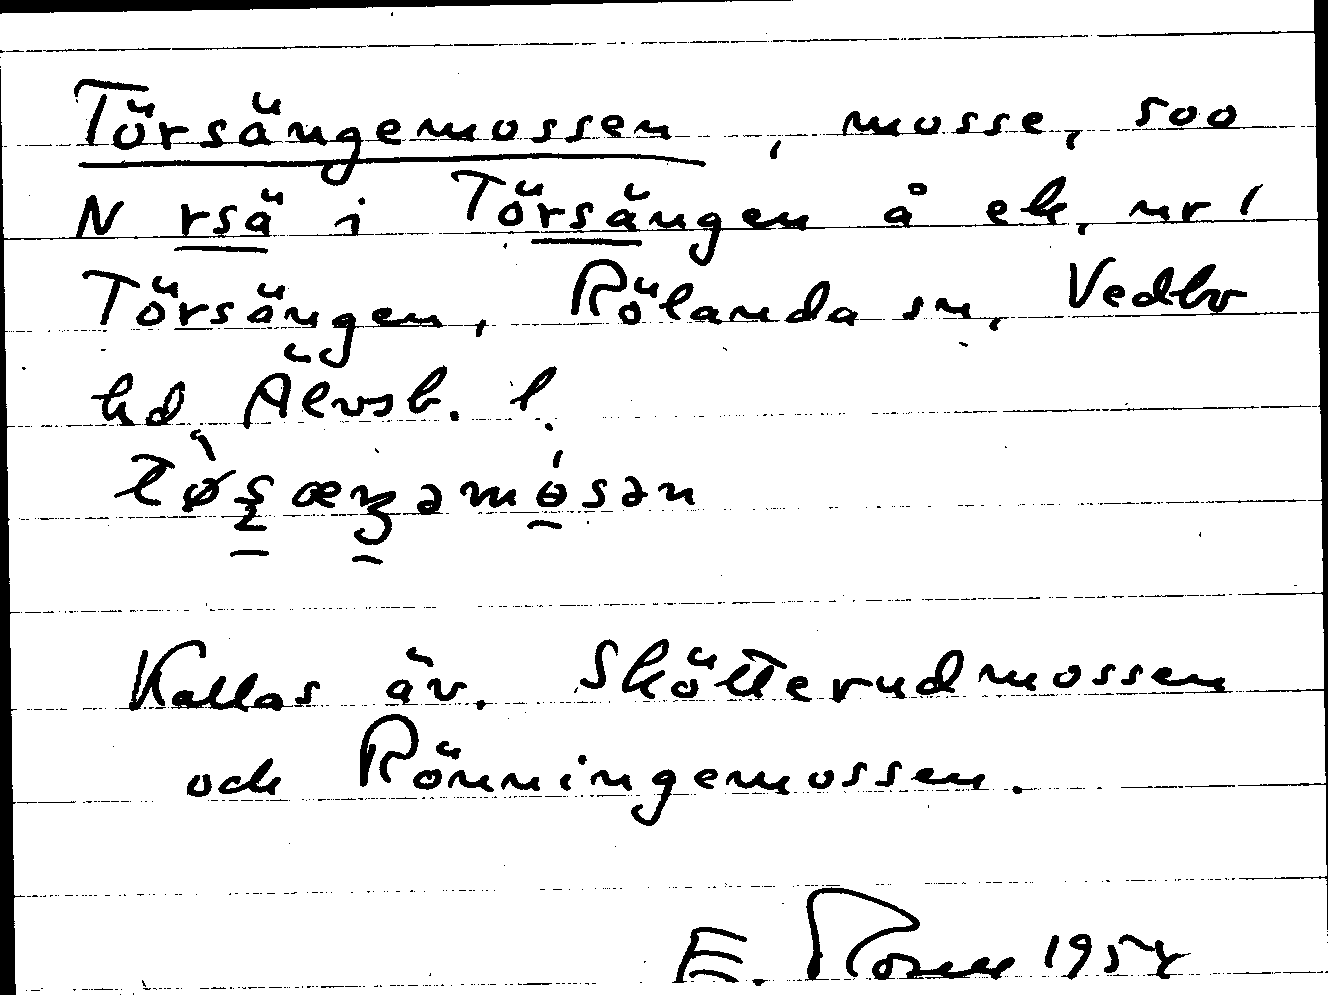 Törsängemossen, mosse, 500
N rsä i Törsängen å ek. nr 1
Törsängen, Rölanda sn, Vedbo
hd, Älvsb. l.
Kallas äv. Skötterudmossen
och Rönningemossen.
E. 1954